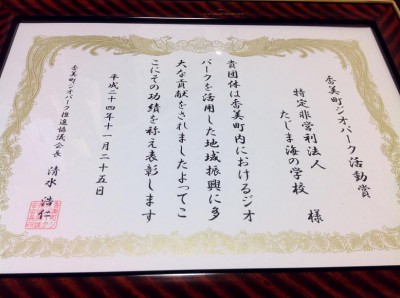 香美町ジオパーク活動賞
特定非営利法人
たじま海の学校 様
貴団体は香美町内におけるジオ
パークを活用した地域振興に多
大な貢献をされましたよってこ
こにその功績を称え表彰します
平成二十四年十一月二十五日
香美町ジオパーク推進協議会長 清水 浩仁